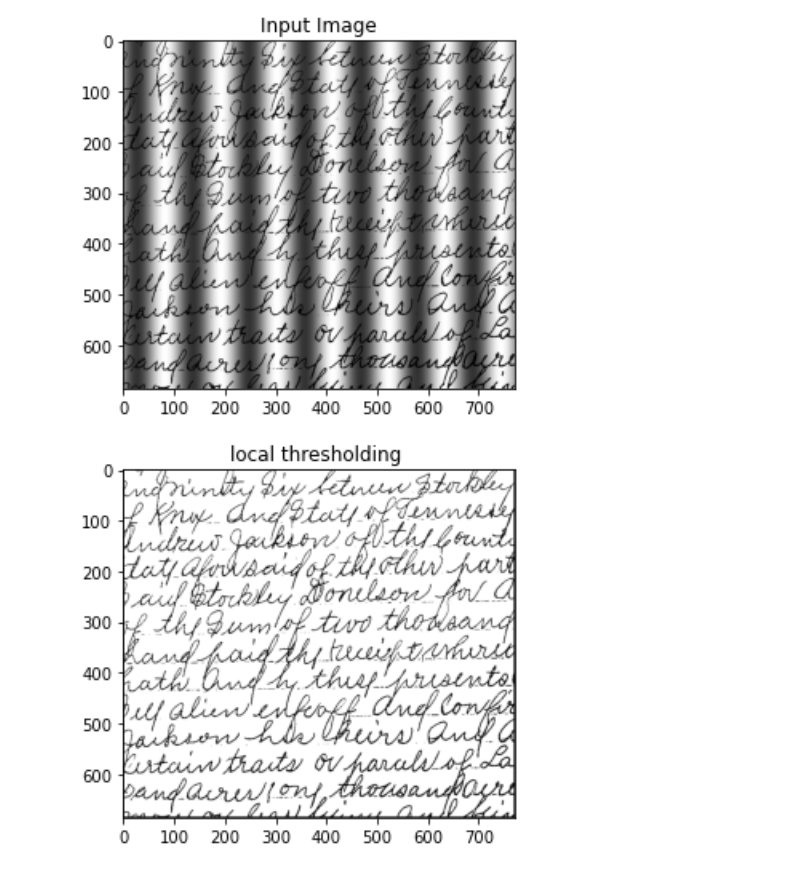 Input Image
0
100
200
300
400
500
600
indninety Six between Stockley
f Knox. And State of Tennessey
Andrew Jackson of the Counti
tate aforesaid of the other part
aid Stockley Donelson for A
of the Sum of two thousand
hand paid the receipt whereo
hath And by these presents
ell alien enfeoff And Confir
Jackson his heirs And A
Certain traits or parcels of La
sand Acres (one thousand Acre
0 100 200 300 400 500 600 700
local thresholding
0
100
200
300
400
500
600
indninety Six between Stockley
f Knox. And State of Tennessey
Andrew Jackson of the Counti
tate aforesaid of the other part
aid Stockley Donelson for A
of the Sum of two thousand
hand paid the receipt whereo
hath And by these presents
ell alien enfeoff And Confir
Jackson his heirs And A
Certain traits or parcels of La
sand Acres (one thousand Acre
0 100 200 300 400 500 600 700